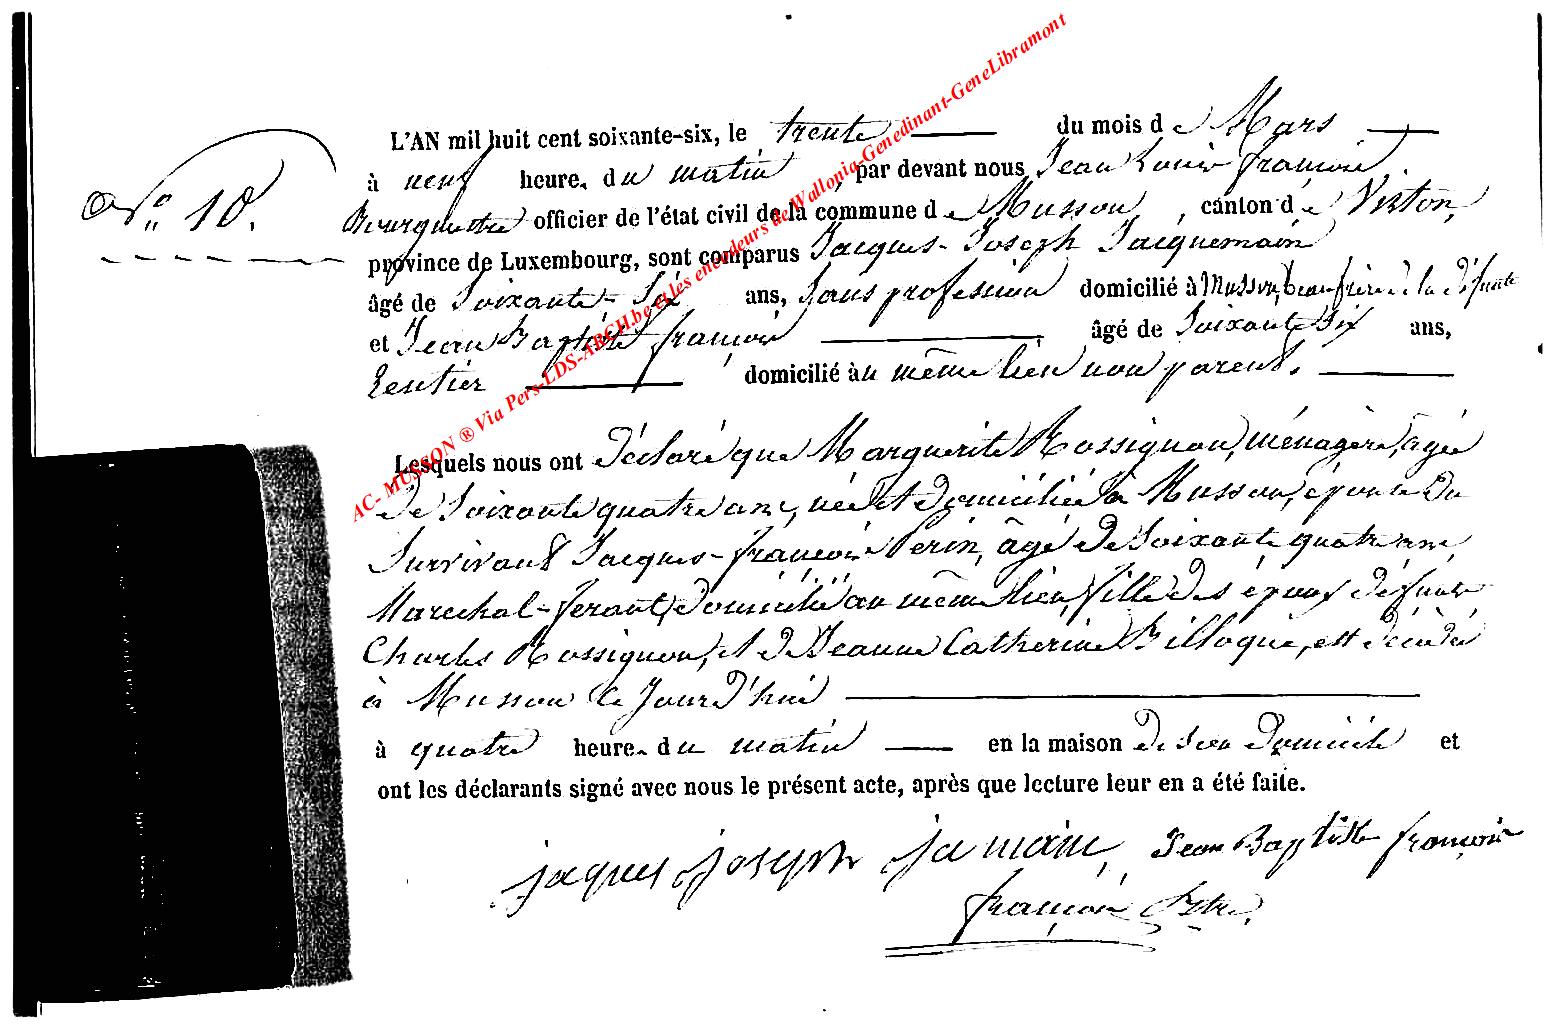 L'AN mil huit cent soixante-six, le trente du mois de Mars
N° 10.
à neuf heure. du matin, par devant nous Jean Louis françois
Bourguetre officier de l'état civil de la commune de Musson, canton de Virton,
province de Luxembourg, sont comparus Jacques-Joseph Jacquemain
âgé de Soixante-Six ans, Sans profession domicilié à Musson, beau frère de la défunte
et Jean Baptiste françois âgé de Soixante Six ans,
Rentier domicilié au même lieu non parent.
Lesquels nous ont déclaré que Marguerite Rossignon, ménagère, agée
de Soixante quatre ans, née et domiciliée à Musson, épouse du
Survivant Jacques-françois Perin, âgé de Soixante quatre ans,
Marechal-ferant, domicilié au même lieu, fille des époux défunts
Charles Rossignon, et de Jeanne Catherine Billoque, est décédée
à Musson ce Jourd'hui
à quatre heure. du matin en la maison de son domicile et
ont les déclarants signé avec nous le présent acte, après que lecture leur en a été faite.
jaques joseph jamain, Jean Baptiste françois
françois
AC- MUSSON ® Via Pers-LDS-ARCH.be et les encodeurs de Wallonia-Genedinant-GeneLibramont